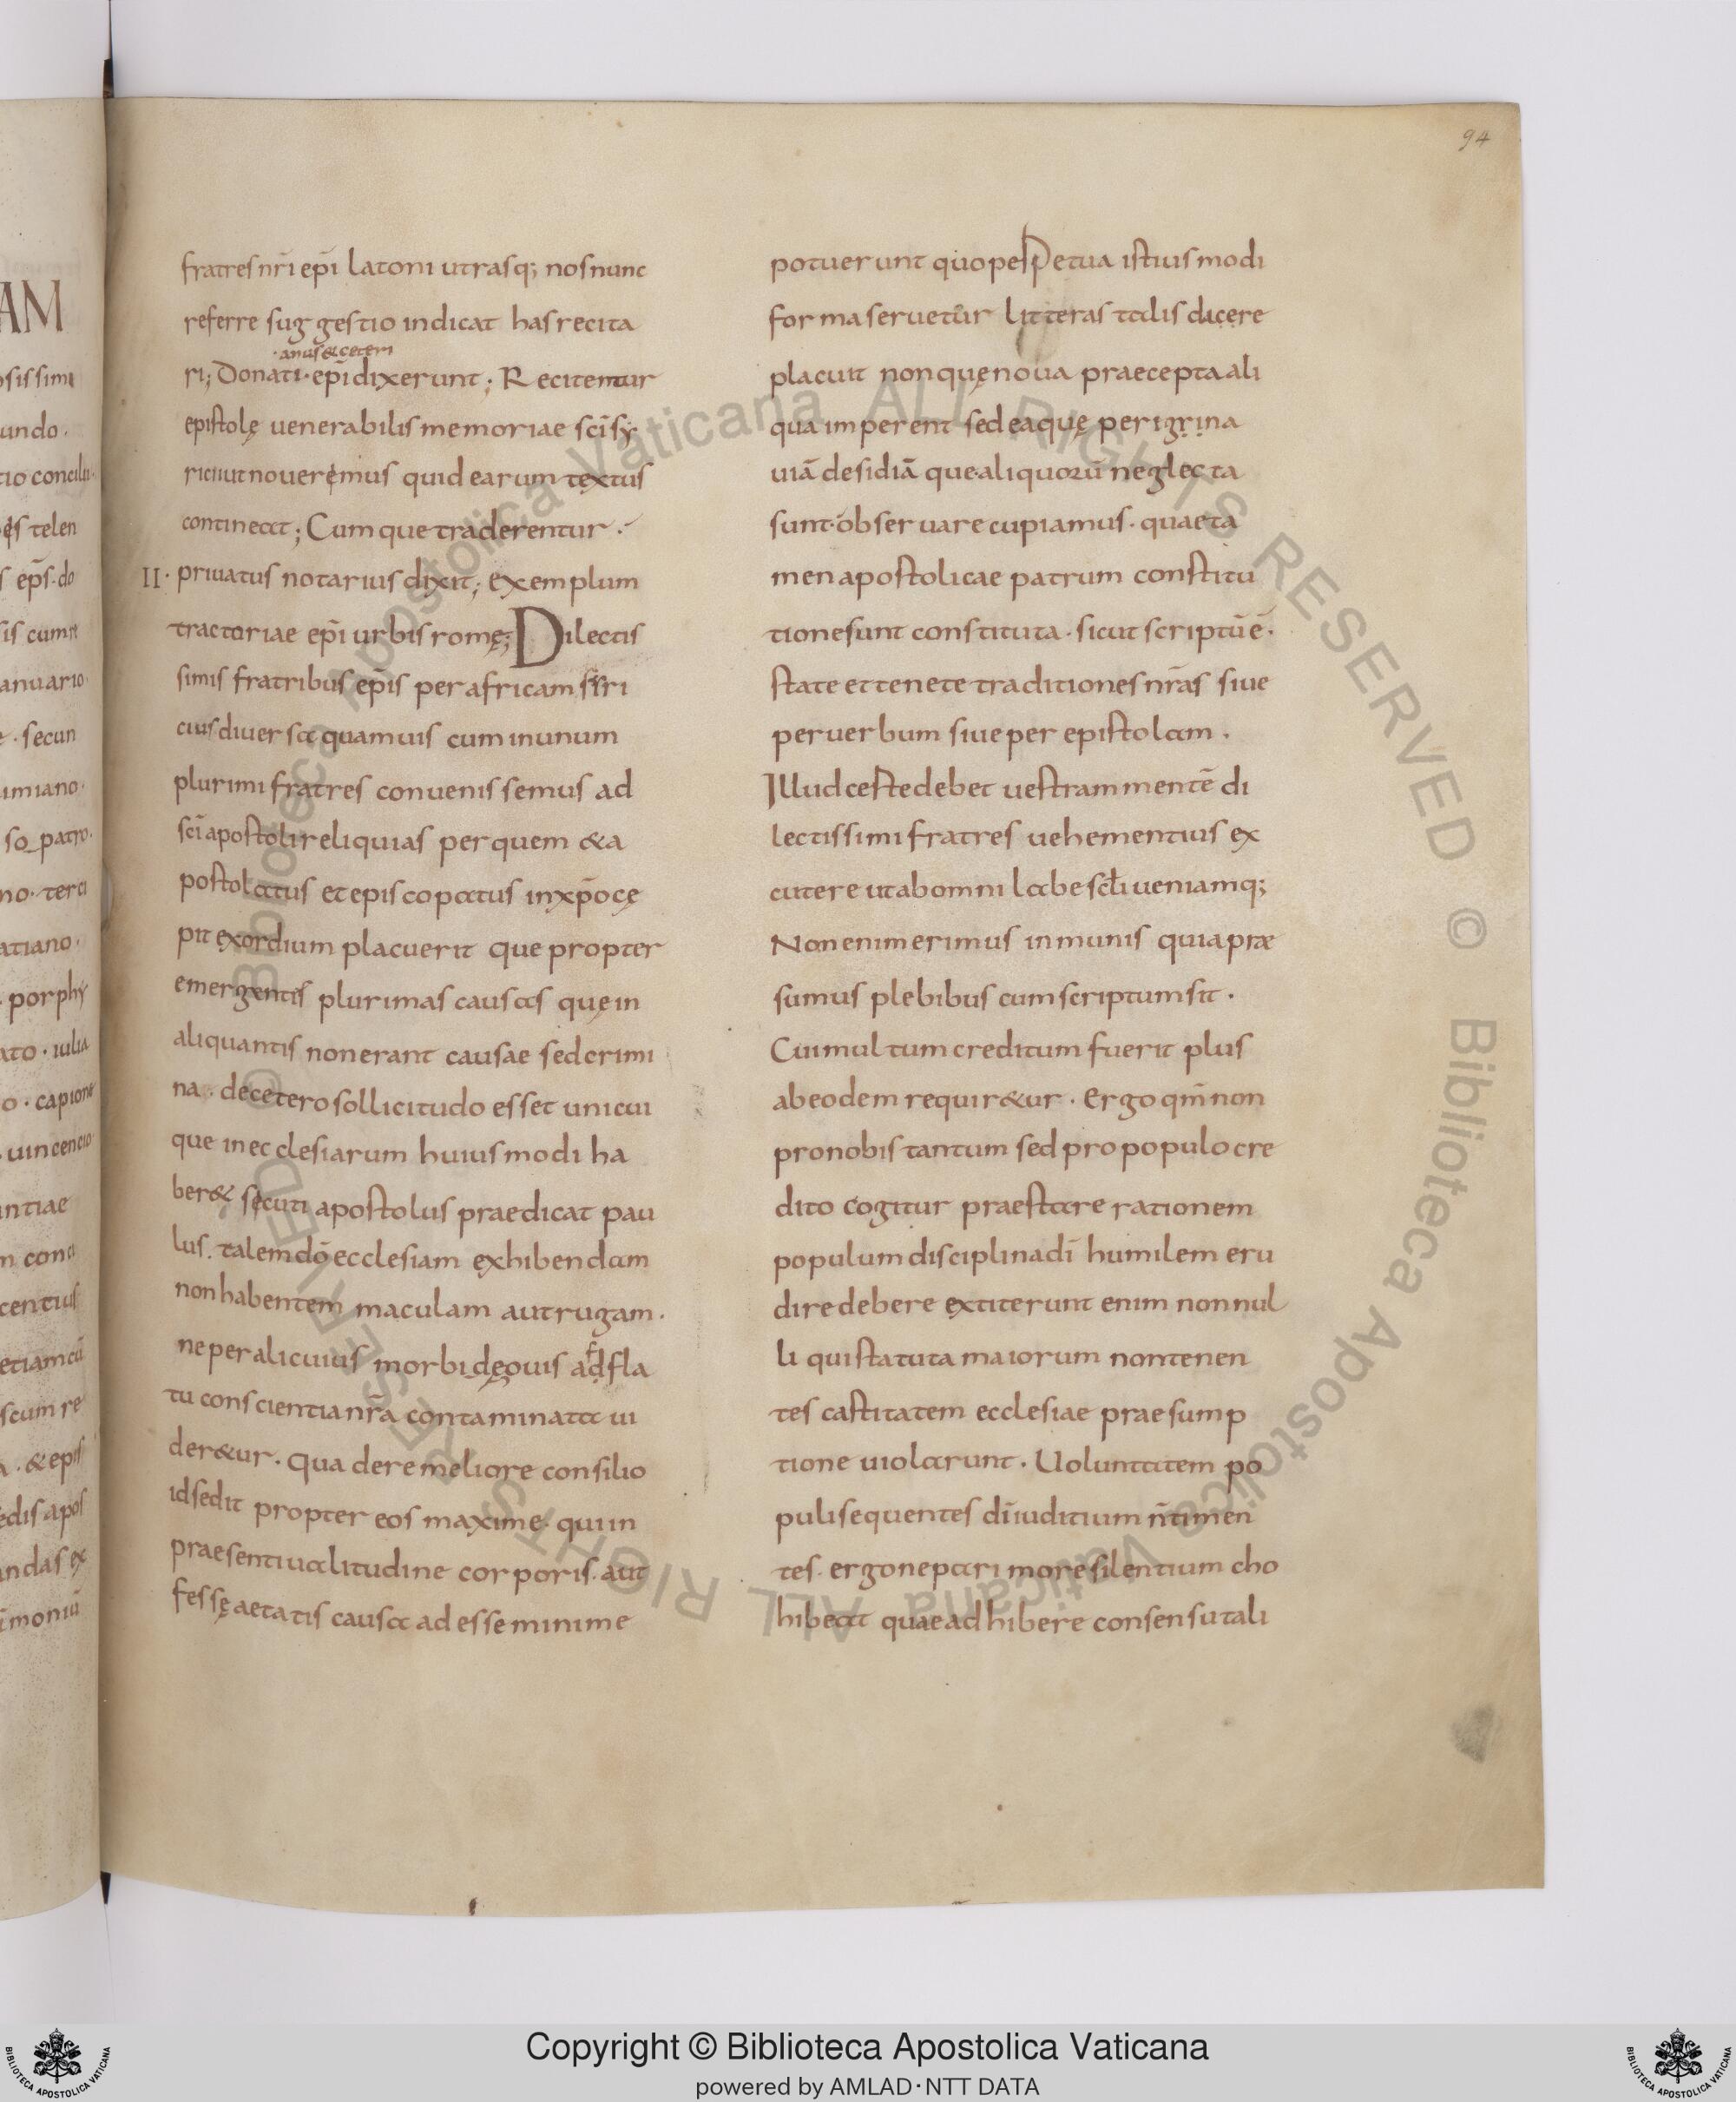 94
fratres nr̄i ep̄i latoni utrasq; nos nunc
referre suggestio indicat has recita
·anus & ceteri
ri; Donati· ep̄i dixerunt; Recitentur
epistolę uenerabilis memoriae sc̄i sy
ricii ut noueremus quid earum textus
contineat; Cumque traderentur ·
II· priuatus notarius dixit; exemplum
tractoriae ep̄i urbis romę; Dilectis
simis fratribus ep̄is per africam siri
cius diuersa quamuis cum in unum
plurimi fratres conuenissemus ad
sc̄i apostoli reliquias per quem & a
postolatus et episcopatus in xp̄o cę
pit exordium placuerit que propter
emergentis plurimas causas quę in
aliquantis non erant causae sed crimi
na · de cetero sollicitudo esset unicui
que in ecclesiarum huius modi ha
ber& secuti apostolus praedicat pau
lus · talem dō ecclesiam exhibendam
non habentem maculam aut rugam ·
ne per alicuius morbidę ouis adfla
f
tu conscientia nr̄a contaminata ui
der&ur · Qua de re meliore consilio
id sedit propter eos maxime qui in
praesenti ualitudine corporis · aut
fessę aetatis causa adesse minime
potuerunt quo perpetua istius modi
forma seruetur litteras talis dicere
placuit non quę noua praecepta ali
qua imperent sed ea quę perigrina
uiā desidiā que· aliquorū neglecta
sunt· obseruare cupiamus · quae ta
men apostolicae patrum constitu
tione sunt constituta · sicut scriptū ē ·
state et tenete traditiones nr̄as siue
per uerbum siue per epistolam ·
Illud ceste debet uestram mentē di
lectissimi fratres uehementius ex
cutere ut ab omni labe sc̄li ueniamq;
Non enim erimus inmunis quia præ
sumus plebibus cum scriptum sit ·
Cui multum creditum fuerit plus
ab eo dem requir&ur · Ergo qm̄ non
pro nobis tantum sed pro populo cre
dito cogitur praestare rationem
populum disciplina dī humilem eru
dire debere extiterunt enim nonnul
li qui statuta maiorum non tenen
tes castitatem ecclesiae praesump
tione uiolarunt · Uoluntatem po
puli sequentes dī iuditium n̄ timen
tes · ergo ne pari more silentium cho
hibeat quae adhibere consensu tali
AM
Copyright © Biblioteca Apostolica Vaticana
powered by AMLAD·NTT DATA
© Biblioteca Apostolica Vaticana ALL RIGHTS RESERVED © Biblioteca Apostolica Vaticana ALL RIGHTS RESERVED
BIBLIOTECA APOSTOLICA VATICANA
BIBLIOTECA APOSTOLICA VATICANA